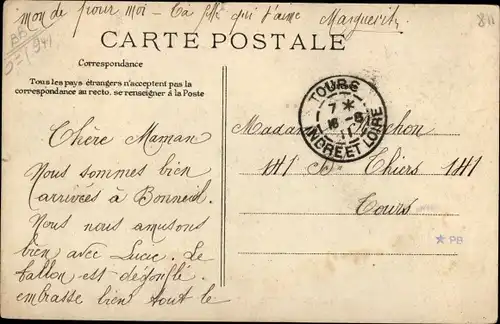 mon de pour moi - Ta fille qui t'aime Marguerite
CARTE POSTALE
Correspondance
Tous les pays étrangers n'acceptent pas la
correspondance au recto. se renseigner à la Poste
TOURS
7 *
16 - 6
11
INDRE ET LOIRE
Chère Maman
Nous sommes bien
arrivées à Bonneuil.
Nous nous amusons
bien avec Lucie. Le
ballon est dégonflé.
embrasse bien tout le
Madame
141 Bd Thiers 141
Tours
* PB